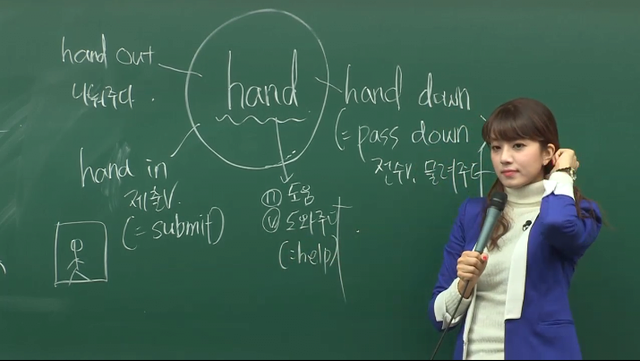 hand out
나눠주다.
hand
hand down
(=pass down
전수V, 물려주다
hand in
제출V.
(=submit)
ⓝ 도움
ⓥ 도와주다
(=help)